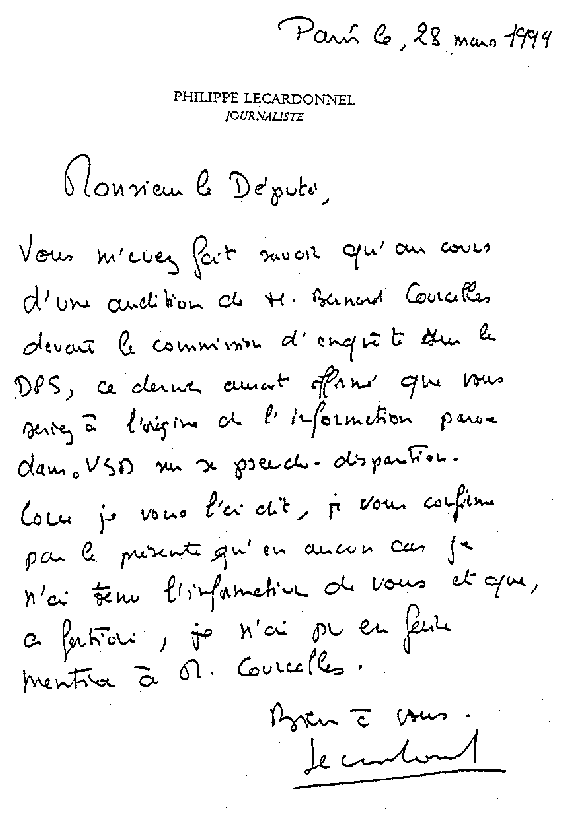 Paris le, 28 mars 1999
PHILIPPE LECARDONNEL
JOURNALISTE
Monsieur le Député,
Vous m'avez fait savoir qu'au cours
d'une audition de M. Bernard Courcelles
devant la commission d'enquête sur le
DPS, ce dernier aurait affirmé que vous
seriez à l'origine de l'information parue
dans VSD sur sa pseudo-disparition.
Comme je vous l'ai dit, je vous confirme
par la présente qu'en aucun cas je
n'ai tenu l'information de vous et que,
a fortiori, je n'ai pu en faire
mention à M. Courcelles.
Bien à vous.
Lecardonnel